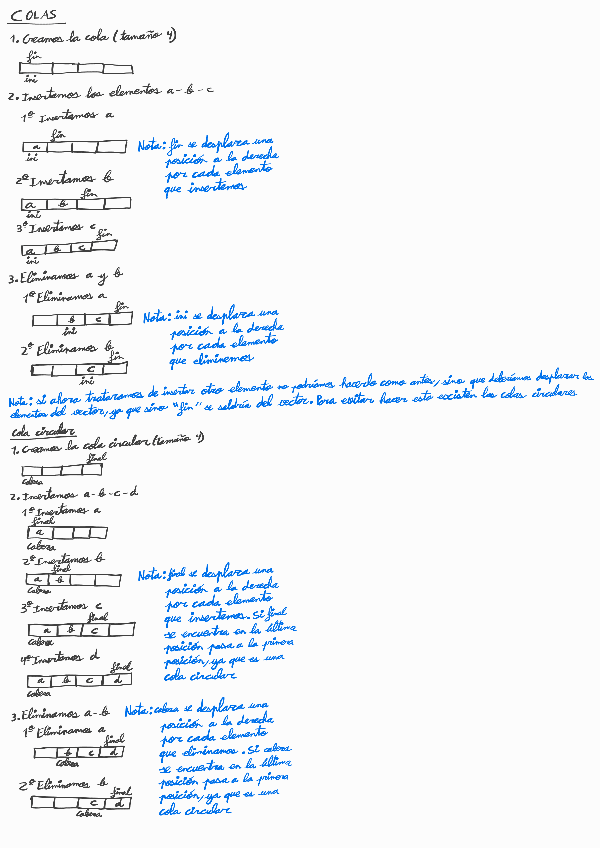 COLAS
1. Creamos la cola (tamaño 4)
fin
ini
2. Insertamos los elementos a-b-c
1º Insertamos a
fin
a
ini
Nota: fin se desplaza una
posición a la derecha
por cada elemento
que insertemos
2º Insertamos b
fin
a b
ini
3º Insertamos c
fin
a b c
ini
3. Eliminamos a y b
1º Eliminamos a
fin
b c
ini
Nota: ini se desplaza una
posición a la derecha
por cada elemento
que eliminemos
2º Eliminamos b
fin
c
ini
Nota: si ahora tratáramos de insertar otro elemento no podríamos hacerlo como antes, sino que deberíamos desplazar los
elementos del vector, ya que sino "fin" se saldría del vector. Para evitar hacer esto existen las colas circulares
Cola circular
1. Creamos la cola circular (tamaño 4)
final
cabeza
2. Insertamos a-b-c-d
1º Insertamos a
final
a
cabeza
2º Insertamos b
final
a b
cabeza
3º Insertamos c
final
a b c
cabeza
4º Insertamos d
final
a b c d
cabeza
Nota: final se desplaza una
posición a la derecha
por cada elemento
que insertemos. Si final
se encuentra en la última
posición pasa a la primera
posición, ya que es una
cola circular
3. Eliminamos a-b
1º Eliminamos a
final
b c d
cabeza
2º Eliminamos b
final
c d
cabeza
Nota: cabeza se desplaza una
posición a la derecha
por cada elemento
que eliminamos. Si cabeza
se encuentra en la última
posición pasa a la primera
posición, ya que es una
cola circular